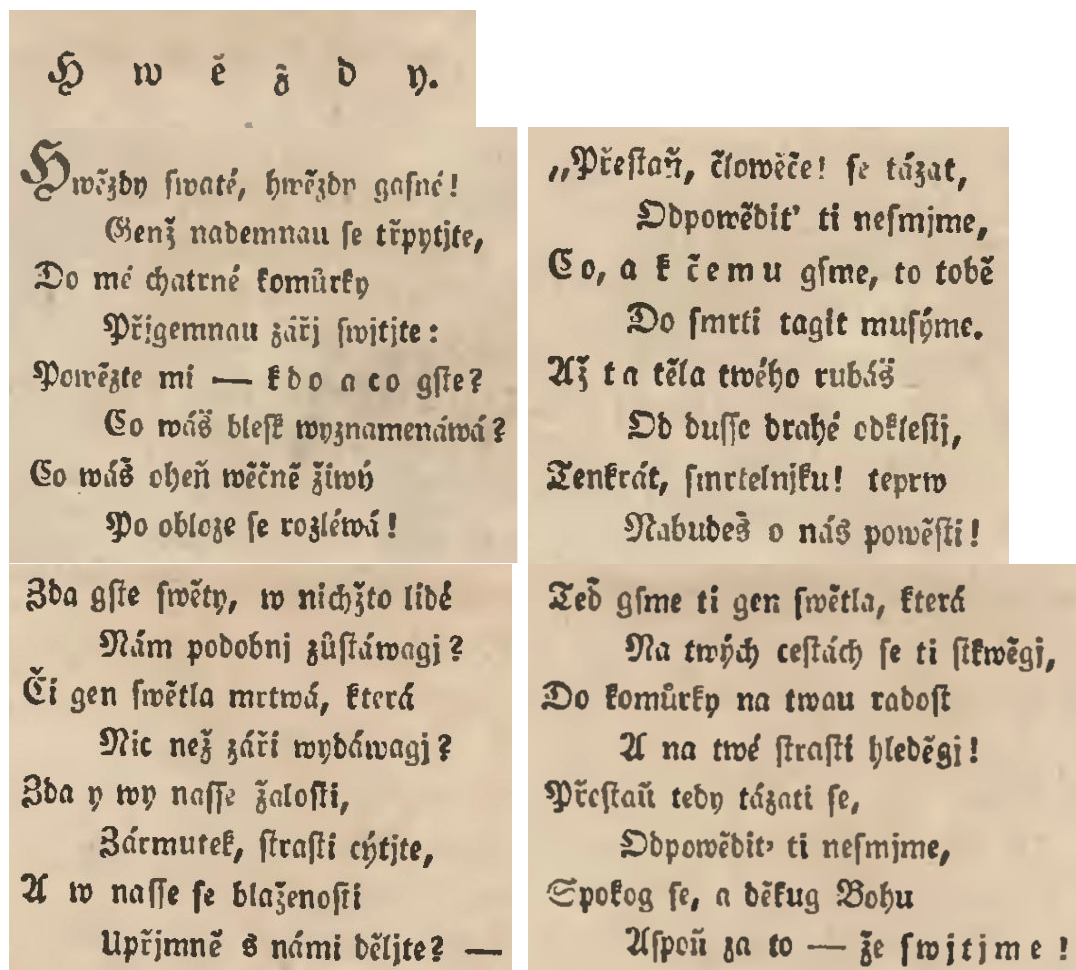 Hwězdy.
Hwězdy swaté, hwězdy gasné!
Genž nademnau se třpytjte,
Do mé chatrné komůrky
Přjgemnau zářj swjtjte:
Powězte mi — kdo a co gste?
Co wáš blesk wyznamenáwá?
Co wáš oheň wěčně žiwý
Po obloze se rozléwá!
Zda gste swěty, w nichžto lidé
Nám podobnj zůstáwagj?
Či gen swětla mrtwá, která
Nic než záři wydáwagj?
Zda y wy nasse žalosti,
Zármutek, strasti cýtjte,
A w nasse se blaženosti
Upřjmně s námi děljte? —
„Přestaň, člowěče! se tázat,
Odpowědit' ti nesmjme,
Co, a k čemu gsme, to tobě
Do smrti tagit musýme.
Až ta těla twého rubáš
Od dusse drahé odklestj,
Tenkrát, smrtelnjku! teprw
Nabudeš o nás powěsti!
Teď gsme ti gen swětla, která
Na twých cestách se ti stkwěgj,
Do komůrky na twau radost
A na twé strasti hleděgj!
Přestaň tedy tázati se,
Odpowědit' ti nesmjme,
Spokog se, a děkug Bohu
Aspoň za to — že swjtjme!